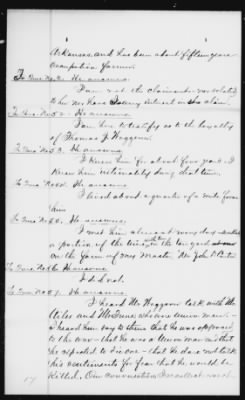 Arkansas, and has been about fifteen years
Occupation farmer
To Ques. No. 2. He answers.
I am not the claimant nor related
to him nor have I any interest in the claim.
To Ques. No. 3. He answers.
I am here to testify as to the loyalty
of Thomas J. Waggoner
To Ques. No. 53. He answers.
I knew him for about four years. I
knew him intimately during that time.
To Ques. No. 54. He answers.
I lived about a quarter of a mile from
him
To Ques. No. 55. He answers.
I met him almost every day
a portion of the time in the tan yard
on the farm of my Master Mr John
To Ques. No. 56. He answers.
I did not.
To Ques. No. 57. He answers.
I heard Mr Waggoner talk with Mr
and who were union men
I heard him say to them that he was opposed
to the war that he was a Union man and that
he expected to die one that he dare not talk
his sentiments for fear that he would be
killed. Our conversation I recollect
17